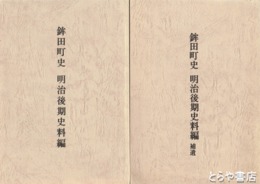 鉾田町史 明治後期史料編 補遺
鉾田町史 明治後期史料編
とらや書店